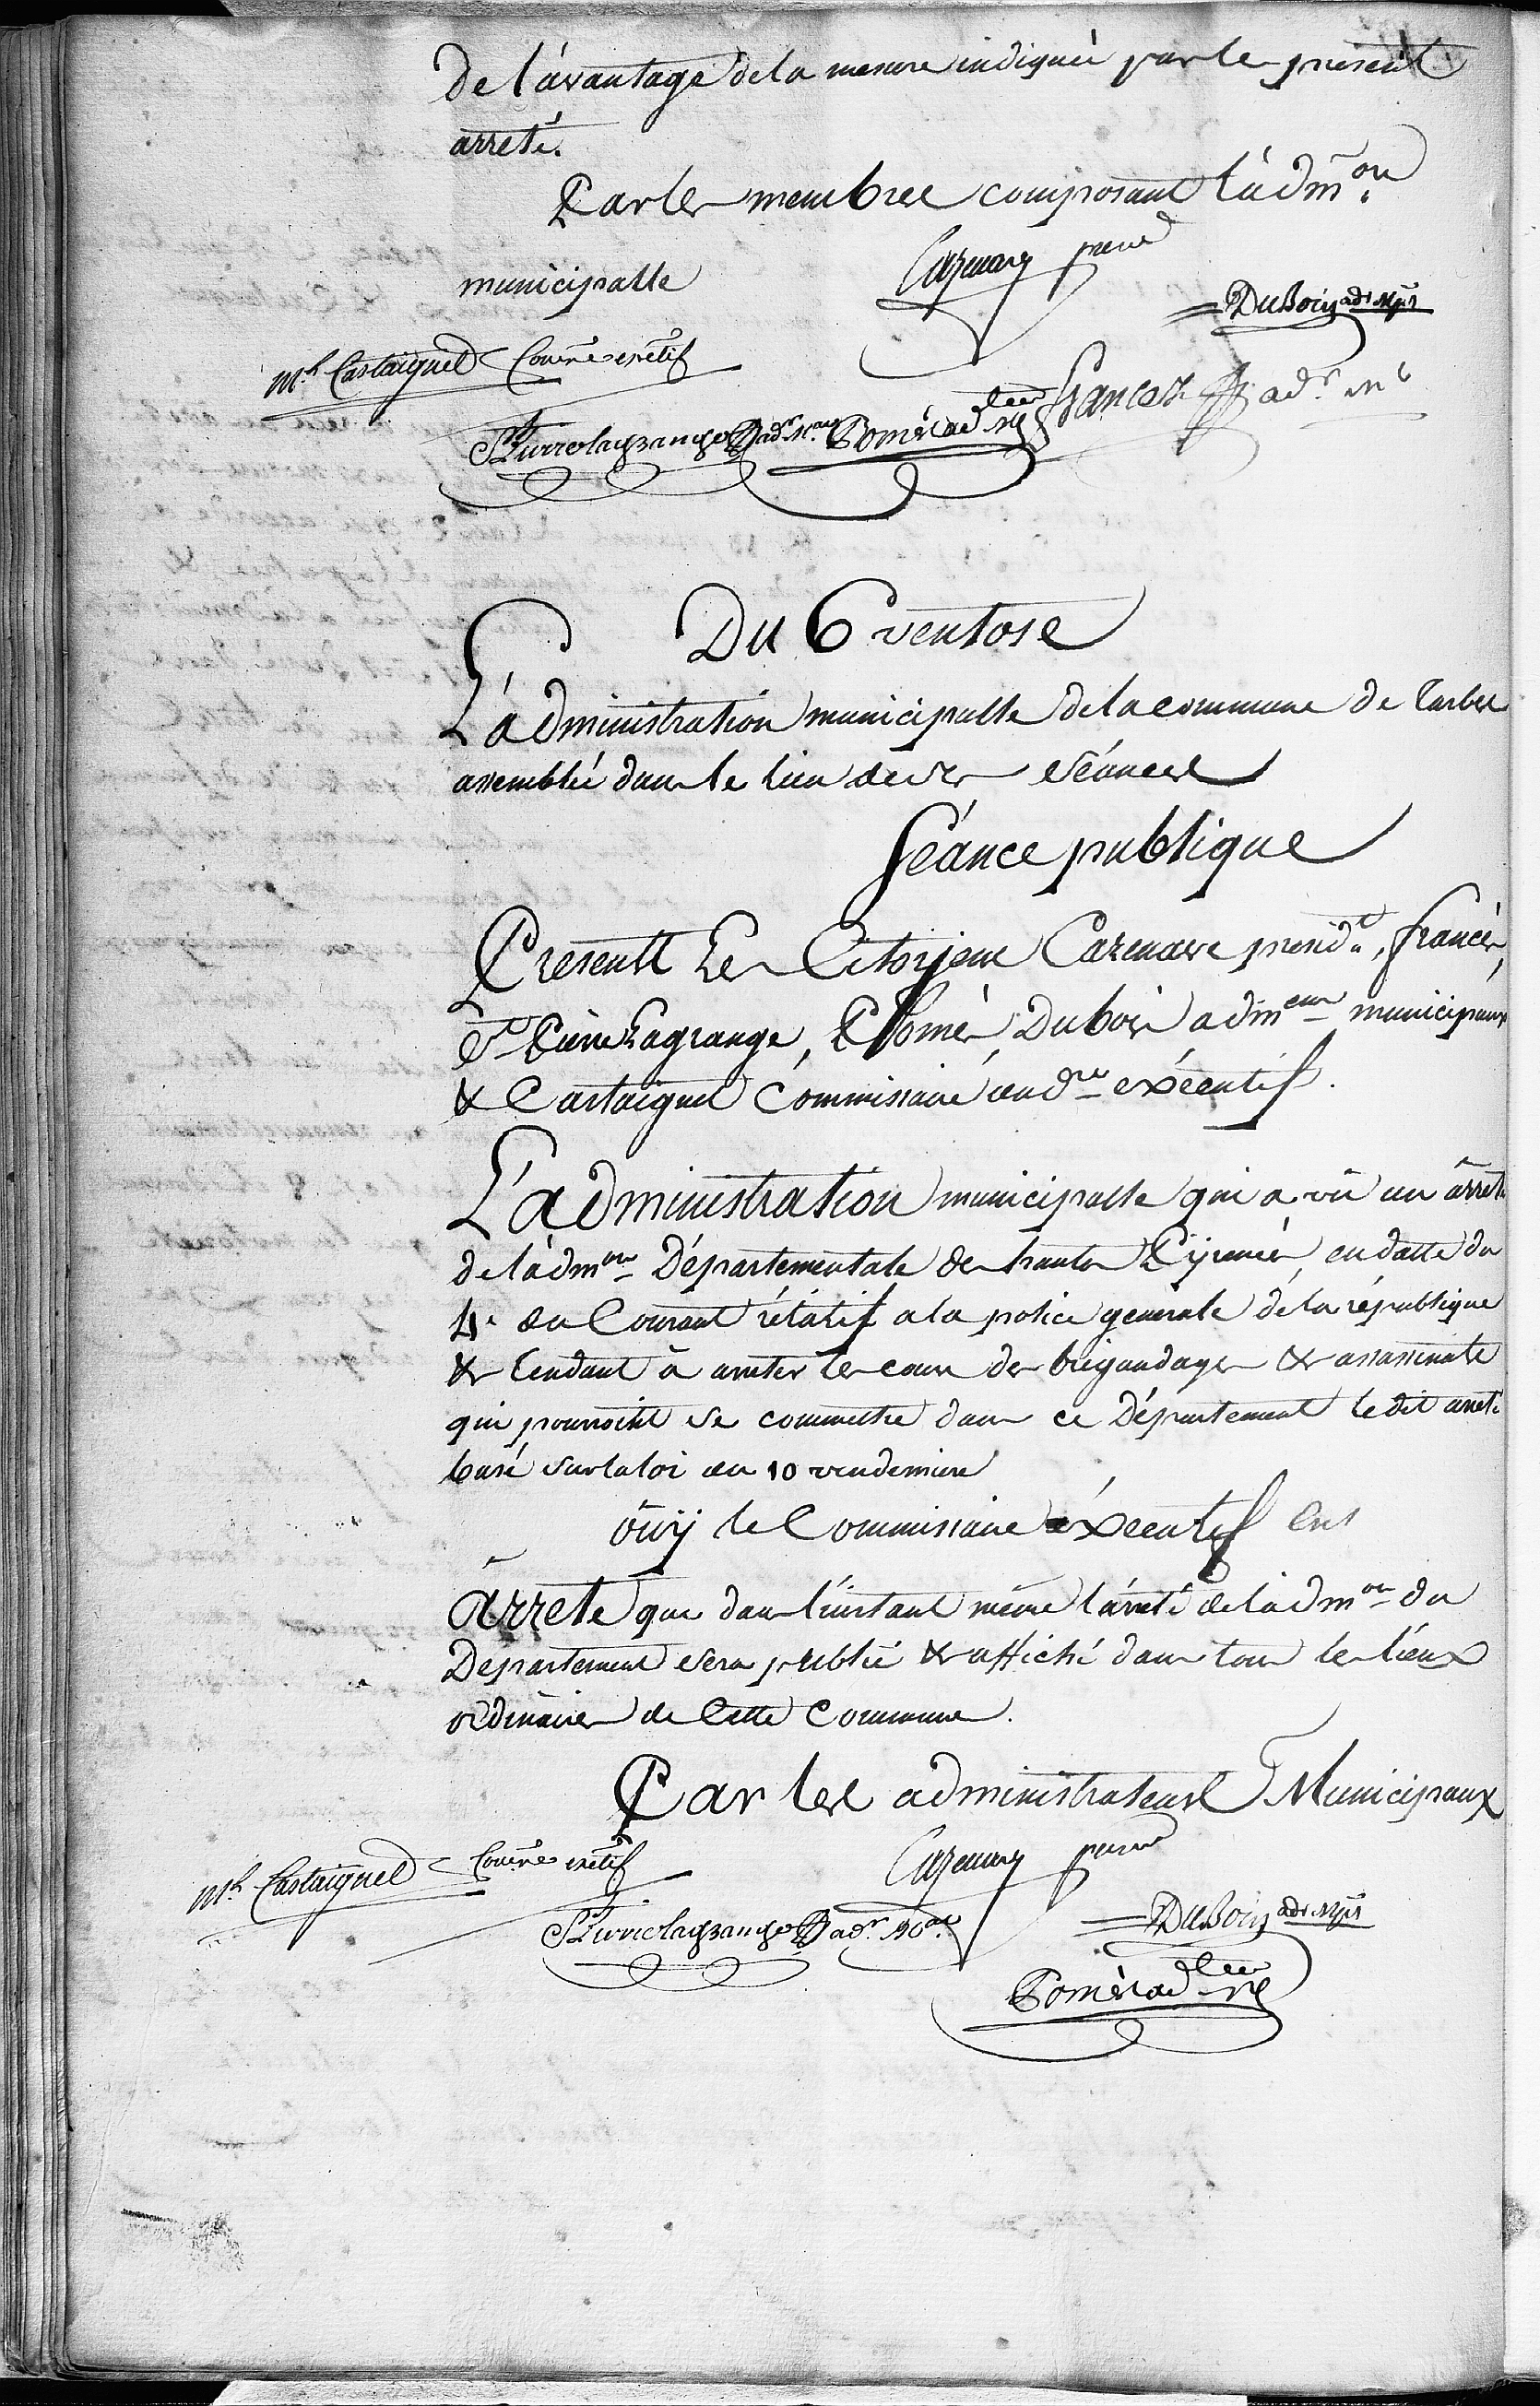 de l'avantage de la mesure indiquée par le présent
arreté.
Par les membres composant l'adm.on
municipalle
Cazenave
DuBois adr mpl
Mh Castaignet Comre exétif
francez adr
St Pierrelagrange adr Pomés
Du 6 ventose
L'administration municipalle de la commune de Tarbes
assemblée dans le lieu de ses séances
Séance publique
Presents Les Citoyens Cazenave présidt, francés,
St Pierre Lagrange, Pomés, Dubois admeurs municipaux
& Castaignet Commissaire du dre exécutif.
L'administration municipalle qui a vû un arreté
de l'admon Départementale des hautes Pyrenées, en datte du
4e du Courant rélatif a la police generale de la république
& tendant à arreter le cours des brigandages & assassinats
qui pourroint se commettre dans ce Département le dit arreté
basé sur la loi du 10 vendemiere
ouÿ le Commissaire éxécutif
Arrete que dans l'instant même l'arreté de l'admon du
Departement sera publié & affiché dans tous les lieux
ordinaires de Cette Commune.
Par les administrateurs Municipaux
Mh Castaignet Comre exétif
Cazenave
St Pierrelagrange adr
DuBois adr mpl
Pomés